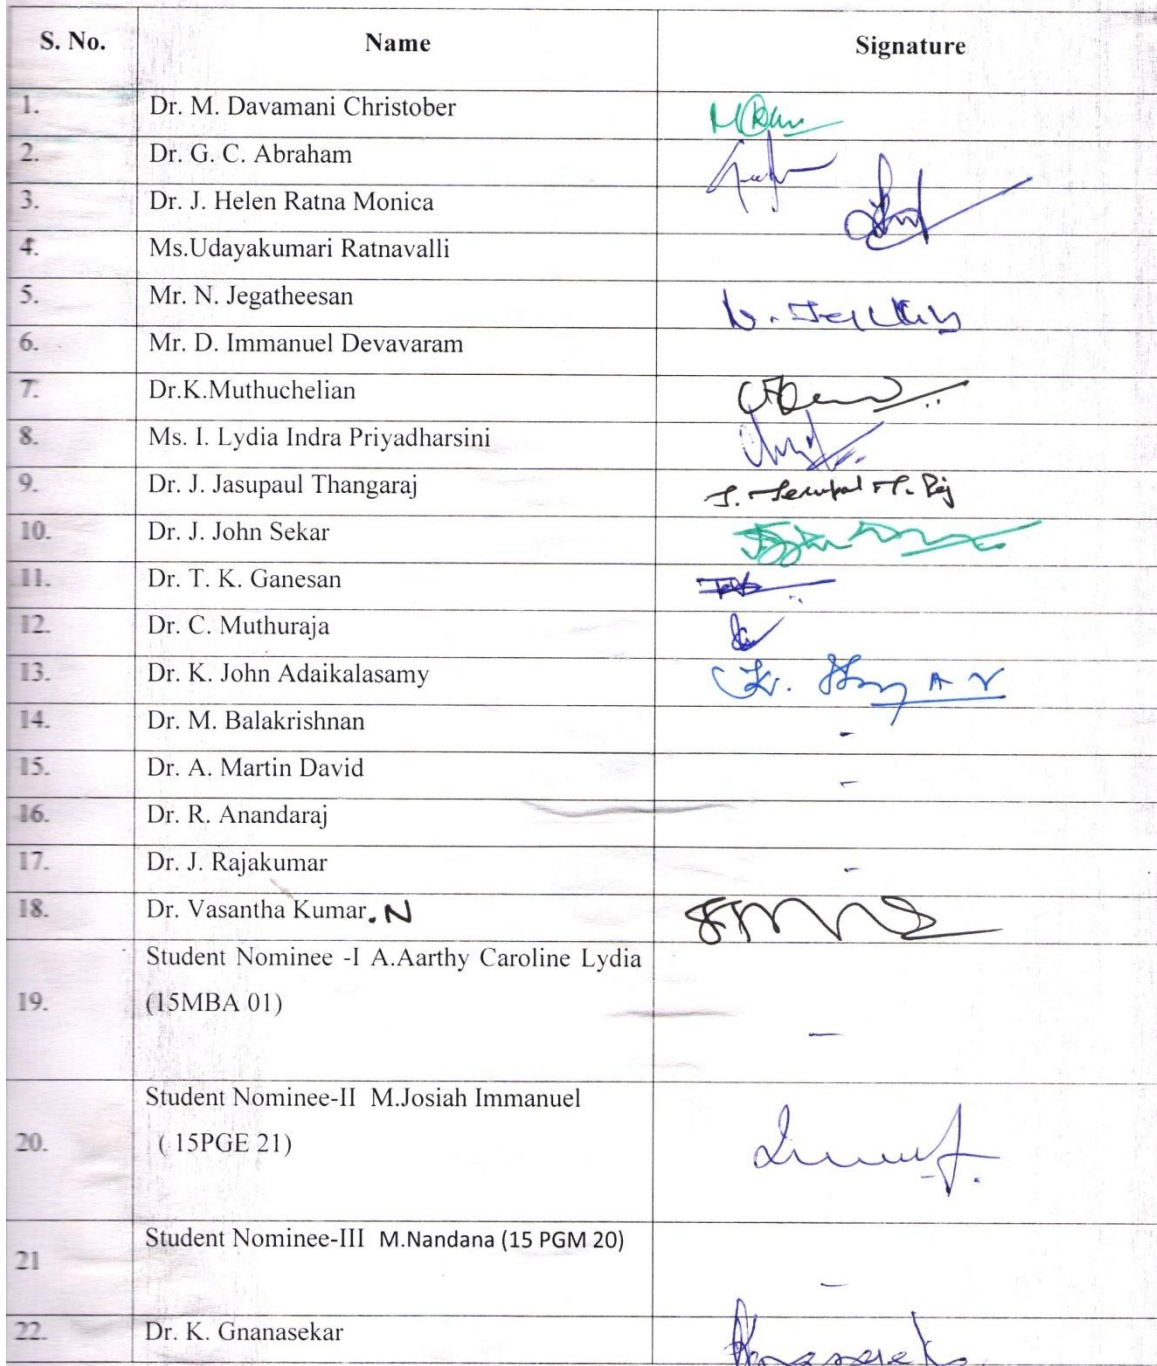 S. No. Name Signature
1. Dr. M. Davamani Christober
2. Dr. G. C. Abraham
3. Dr. J. Helen Ratna Monica
4. Ms.Udayakumari Ratnavalli
5. Mr. N. Jegatheesan
6. Mr. D. Immanuel Devavaram
7. Dr.K.Muthuchelian
8. Ms. I. Lydia Indra Priyadharsini
9. Dr. J. Jasupaul Thangaraj
10. Dr. J. John Sekar
11. Dr. T. K. Ganesan
12. Dr. C. Muthuraja
13. Dr. K. John Adaikalasamy
14. Dr. M. Balakrishnan -
15. Dr. A. Martin David -
16. Dr. R. Anandaraj
17. Dr. J. Rajakumar -
18. Dr. Vasantha Kumar. N
Student Nominee -I A.Aarthy Caroline Lydia
19. (15MBA 01)
-
Student Nominee-II M.Josiah Immanuel
20. ( 15PGE 21)
Student Nominee-III M.Nandana (15 PGM 20)
21
-
22. Dr. K. Gnanasekar